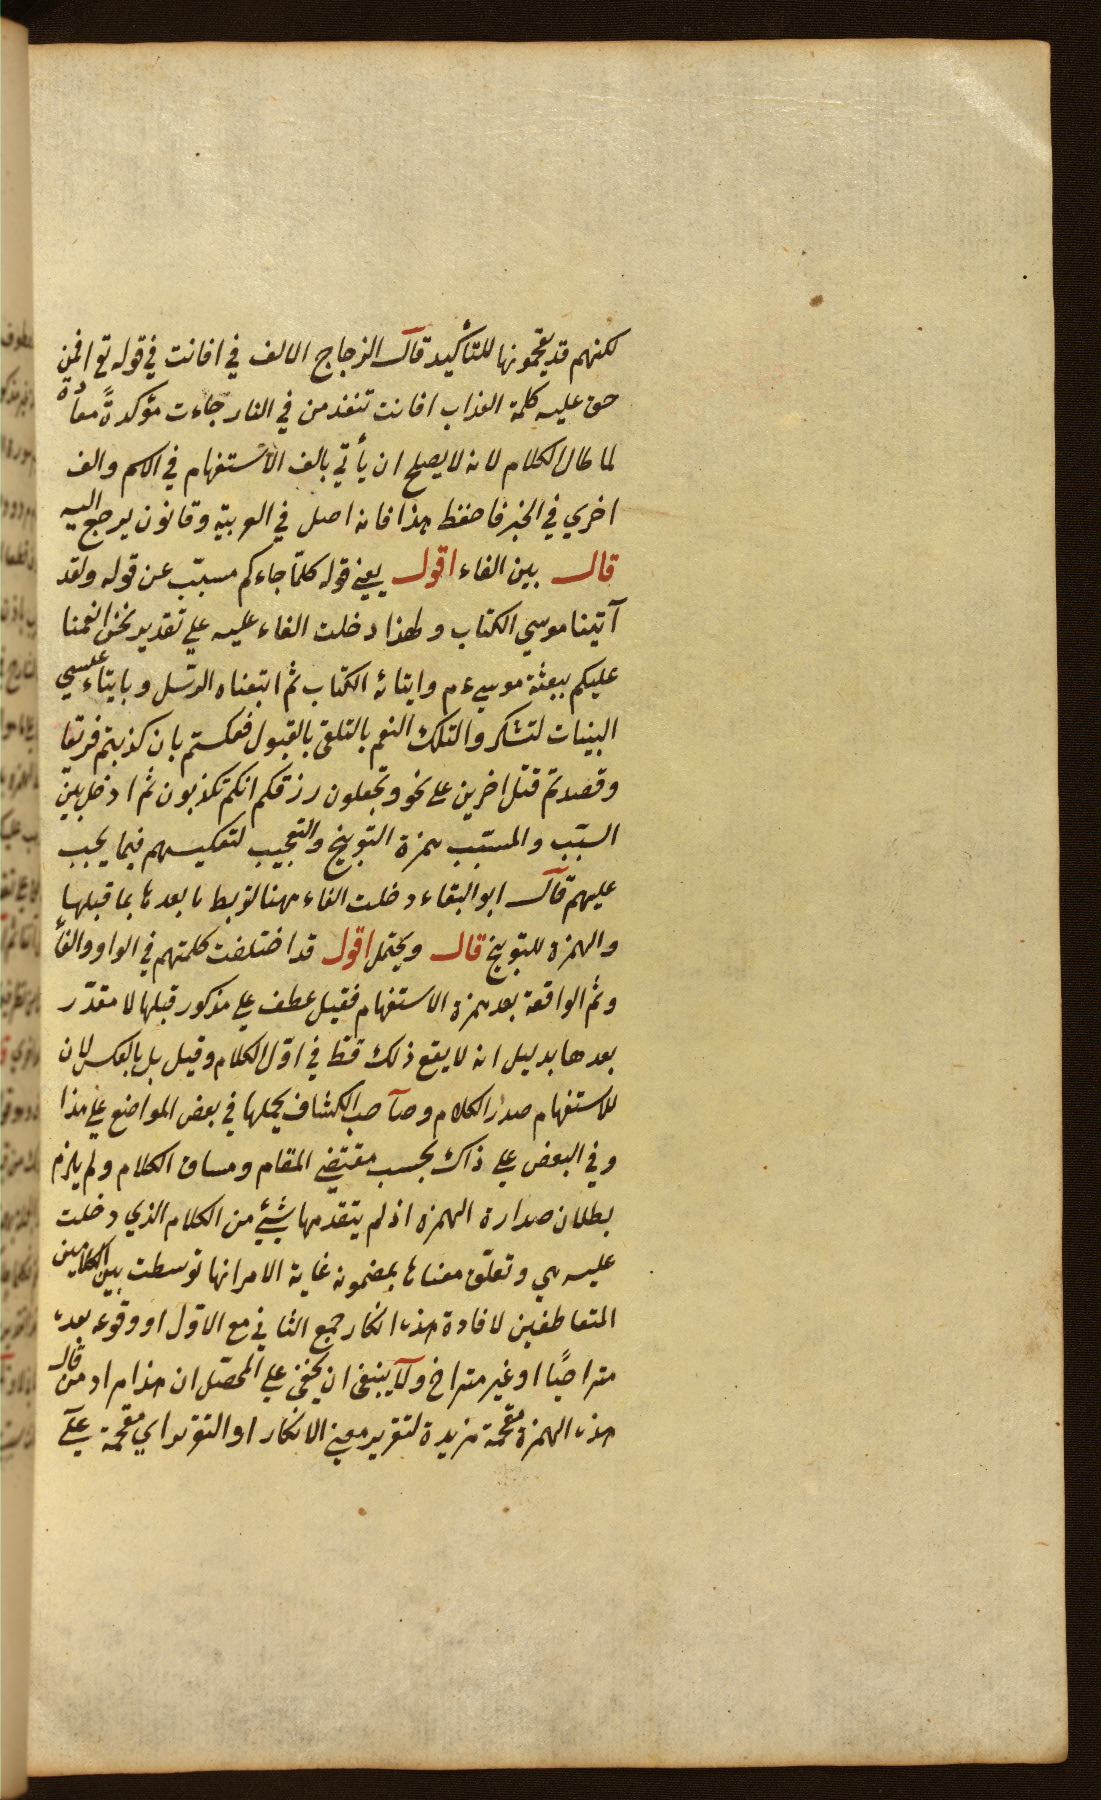 لكنهم قد يقحمونها للتأكيد قال الزجاج الالف في افانت في قوله تع افمن
حق عليه كلمة العذاب افانت تنقذ من في النار جاءت مؤكدةً معادة
لما طال الكلام لانه لا يصلح ان يأتي بالف الاستفهام في الاسم والف
اخري في الخبر فاحفظ هذا فانه اصل في العربية وقانون يرجع اليه
قال بين الفاء اقول يعني قوله كلّما جاءكم مسبّب عن قوله ولقد
آتينا موسي الكتاب ولهذا دخلت الفاء عليه علي تقدير نحن انعمنا
عليكم ببعثة موسي ءم وايتائه الكتاب ثم اتبعناه الرسل وبايتاء عيسي
البينات لتشكروا تلك النعم بالتلقي بالقبول فعكستم بان كذبتم فريقا
وقصدتم قتل اخرين علي نحو وتجعلون رزقكم انكم تكذبون ثم ادخل بين
السبّب والمسبّب همزة التوبيخ والتعجيب لتعكيسهم فيما يجب
عليهم قال ابو البقاء دخلت الفاء ههنا لتربط ما بعدها بما قبلها
والهمزة للتوبيخ قال ويحتمل اقول قد اختلفت كلمتهم في الواو والفأ
وثم الواقعة بعد همزة الاستفهام فقيل عطف علي مذكور قبلها لا مقدّر
بعدها بدليل انه لا يقع ذلك قط في اوّل الكلام وقيل بل بالعكس لان
للاستفهام صدر الكلام وصاحب الكشاف يحملها في بعض المواضع علي هذا
وفي البعض علي ذاك بحسب مقتضي المقام ومساق الكلام ولم يلزم
بطلان صدارة الهمزة اذ لم يتقدمها شيئ من الكلام الذي دخلت
عليه هي وتعلّق معناها بمضمونه غاية الامر انها توسطت بين الكلامين
المتعاطفين لافادة هذه انكار جمع الثاني مع الاوّل او وقوعه بعده
متراخيًا او غير متراخ ولا ينبغي ان يخفي علي المحصّل ان هذا مراد من قال
هذه الهمزة مقحمة مزيدة لتقرير معني الانكار او التقرير اي مقحمة علي